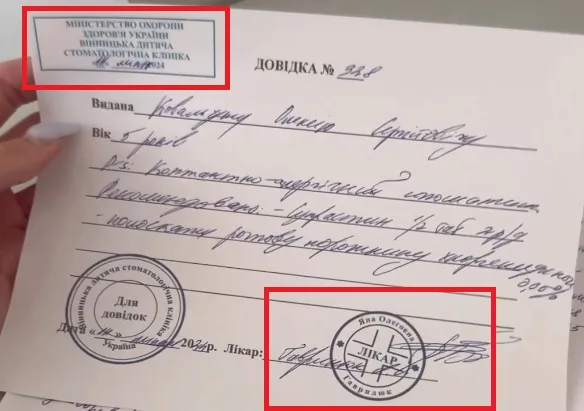 МІНІСТЕРСТВО ОХОРОНИ
ЗДОРОВ'Я УКРАЇНИ
ВІННИЦЬКА ДИТЯЧА
СТОМАТОЛОГІЧНА КЛІНІКА
2024
ДОВІДКА № 338
Видана
Вік 5 років
Ds: Контактно-алергічний стоматит
Рекомендовано: - Супрастин 1/2 таб
- полоскати ротову порожнину
0,05%
Вінницька дитяча стоматологічна клініка
Для
довідок
Україна
Дата « » 2024р. Лікар: Гаврилюк
Яна Олегівна
ЛІКАР
Гаврилюк